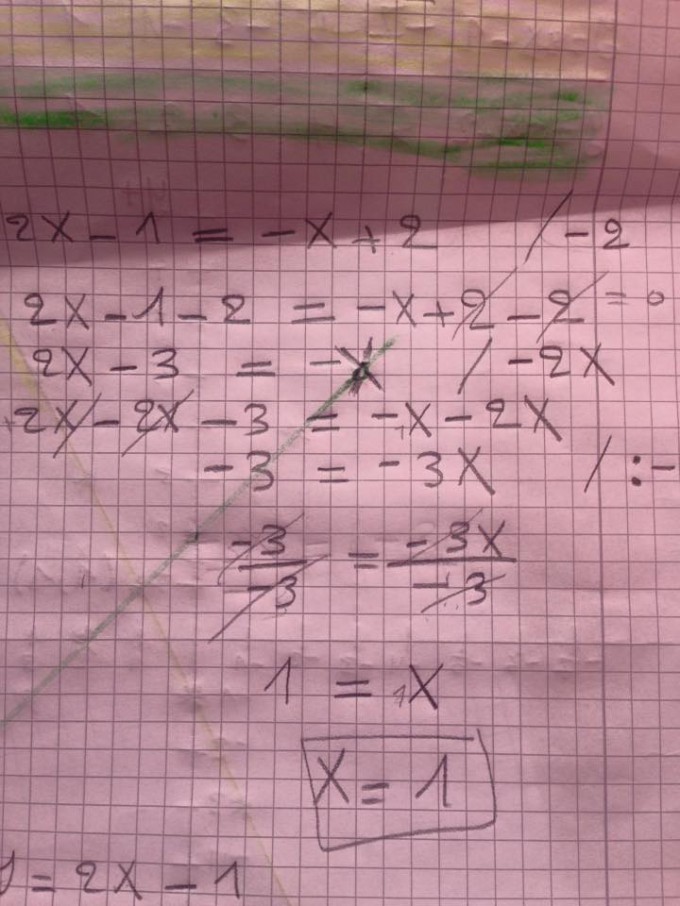 2x - 1 = -x + 2 / -2
2x - 1 - 2 = -x + 2 - 2 = 0
2x - 3 = -x / -2x
+2x - 2x - 3 = -1x - 2x
-3 = -3x / :-
-3/-3 = -3x/-3
1 = 1x
x = 1
= 2x - 1